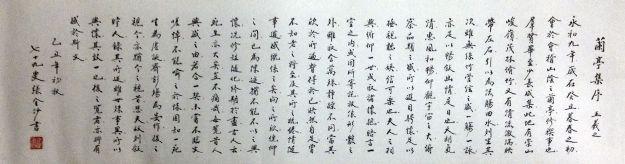 蘭亭集序 王羲之
永和九年歲在癸丑暮春之初
會於會稽山陰之蘭亭修禊事也
群賢畢至少長咸集此地有崇山
峻嶺茂林修竹又有清流激湍映
帶左右引以為流觴曲水列坐其
次雖無絲竹管弦之盛一觴一詠
亦足以暢敘幽情是日也天朗氣
清惠風和暢仰觀宇宙之大俯
察品類之盛所以遊目騁懷足以
極視聽之娛信可樂也夫人之相
與俯仰一世或取諸懷抱晤言一
室之內或因所寄託放浪形骸之
外雖取舍萬殊靜躁不同當其
欣於所遇暫得於己快然自足曾
不知老之將至及其所之既倦情
隨事遷感慨係之矣向之所欣俯仰
之間已為陳迹猶不能不以之興
懷況修短隨化終期於盡古人云
死生亦大矣豈不痛哉每覽昔人
興感之由若合一契未嘗不臨文
嗟悼不能喻之於懷固知一死
生為虛誕齊彭殤為妄作後之
視今亦猶今之視昔悲夫故列敘
時人錄其所述雖世殊事異所以
興懷其致一也後之覽者亦將有
感於斯文
己丑年初秋
七十九叟張金書